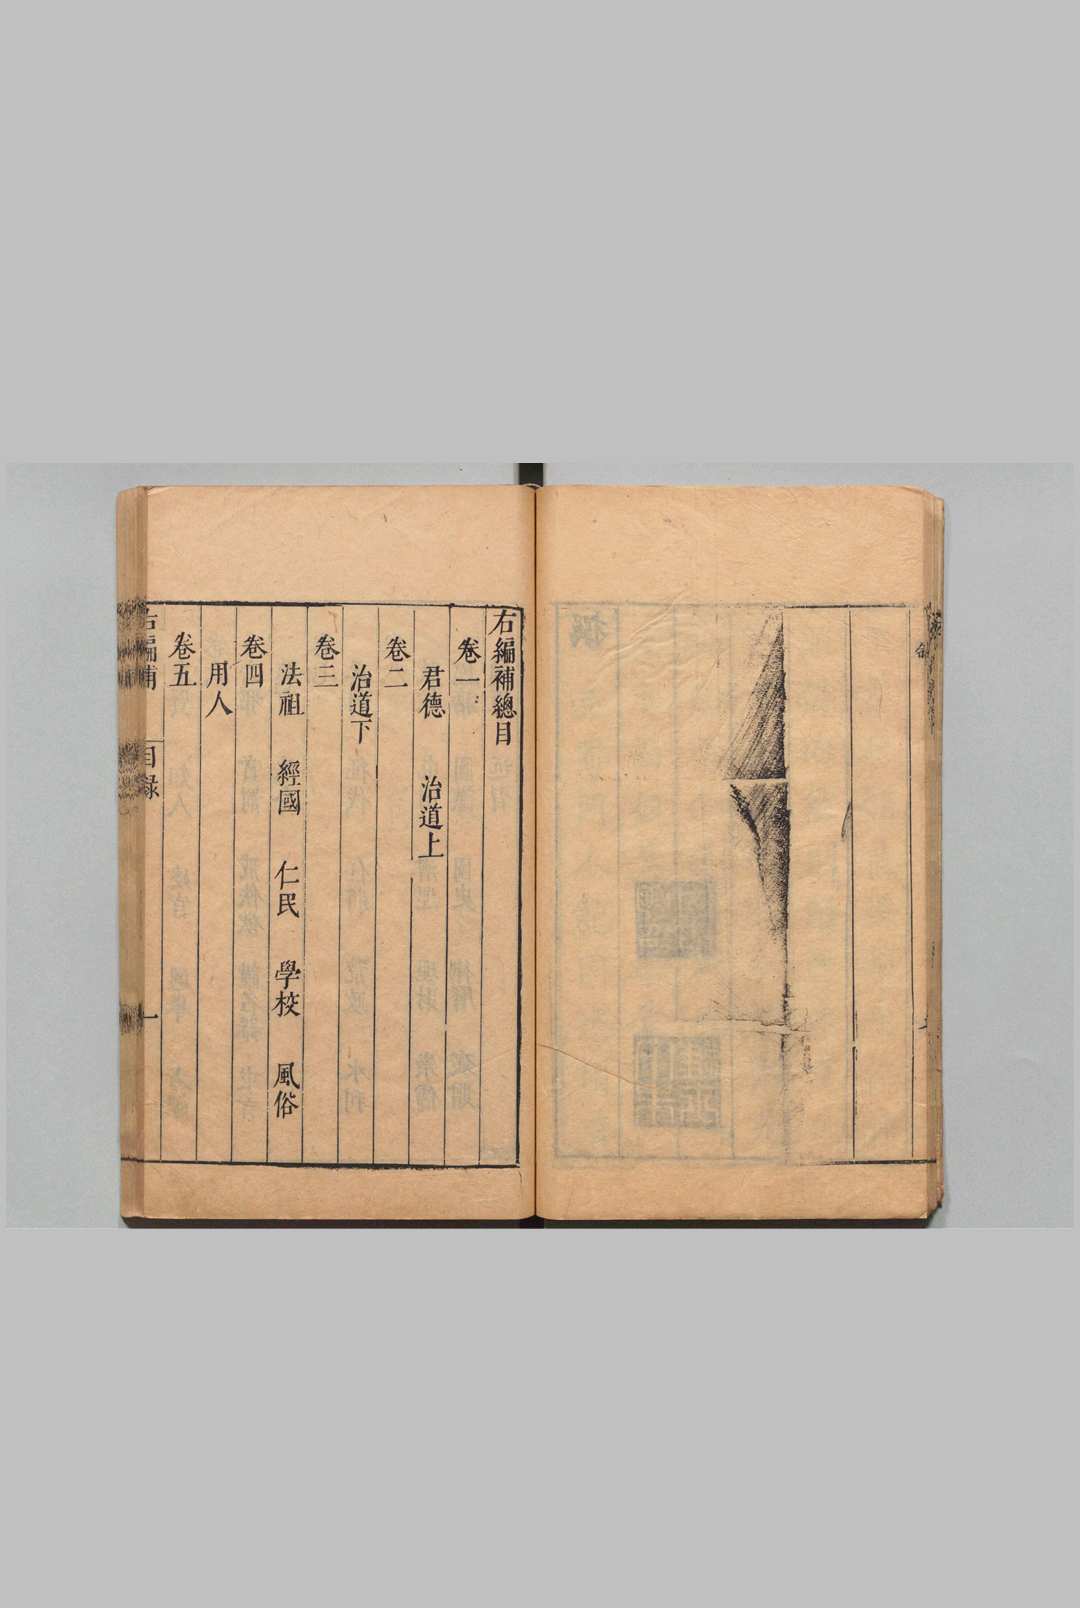 右編補總目
卷一
君德　治道上
卷二
治道下
卷三
法祖　經國　仁民　學校　風俗
卷四
用人
卷五
右編補　目錄　一